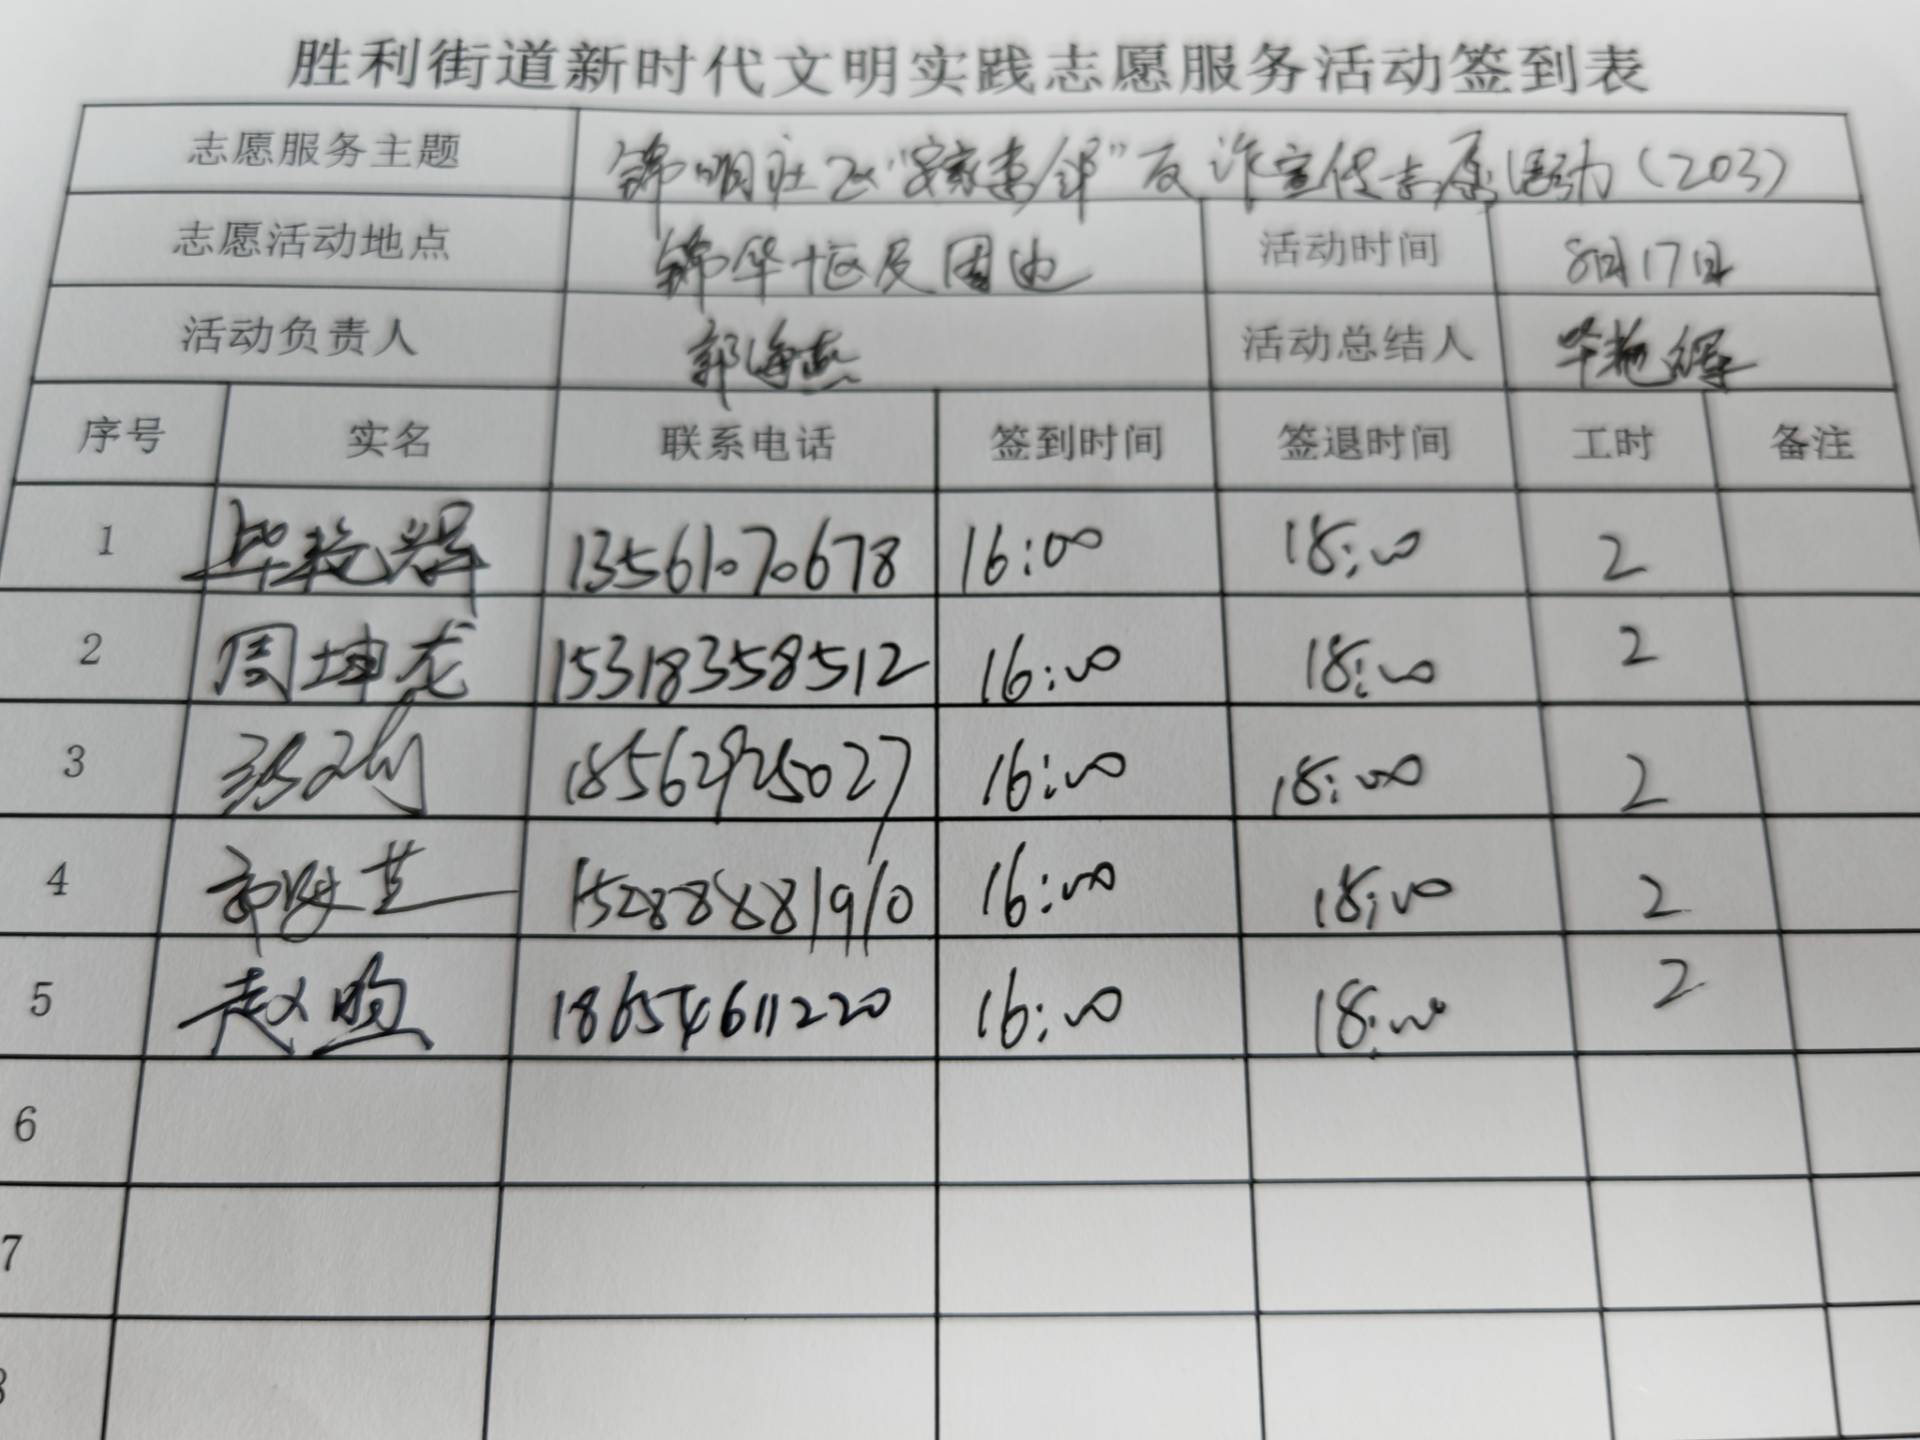 胜利街道新时代文明实践志愿服务活动签到表
志愿服务主题 锦明社区“家惠邻”反诈宣传志愿活动(203)
志愿活动地点 锦华十区及周边 活动时间 8月17日
活动负责人 郭海燕 活动总结人 毕艳辉
序号 实名 联系电话 签到时间 签退时间 工时 备注
1 毕艳辉 13561070678 16:00 18:00 2
2 周坤龙 15318358512 16:00 18:00 2
3 18562925027 16:00 18:00 2
4 15288881910 16:00 18:00 2
5 赵 18654611220 16:00 18:00 2
6
7
8